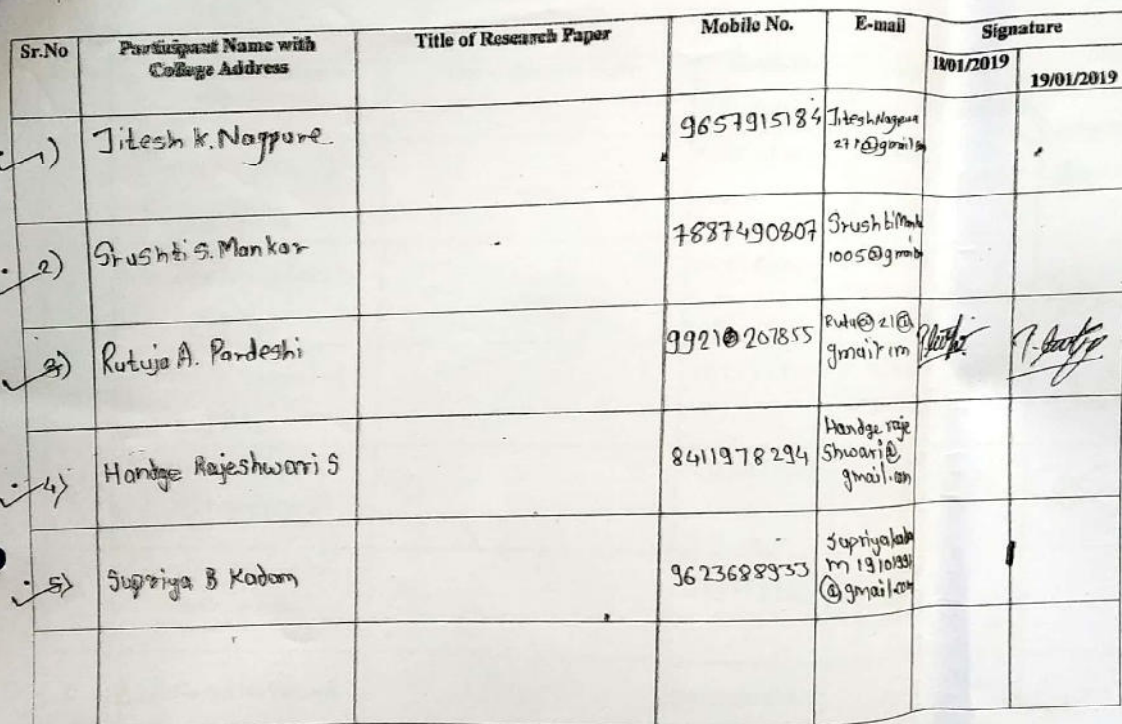 Sr.No
Participant Name with
College Address
Title of Research Paper
Mobile No.
E-mail
Signature
18/01/2019
19/01/2019
1)
Jitesh K. Nagpure
9657915184
Jitesh Nagpure
27
2)
Srushti S. Mankar
7887490807
Srushti
1005@gmail
3)
Rutuja A. Pardeshi
9921 207855
21@
4)
Handge Rajeshwari S
8411978294
Handge raje
shwari@
gmail.com
5)
Supriya B Kadam
9623688933
Supriyakada
m
@gmail.com